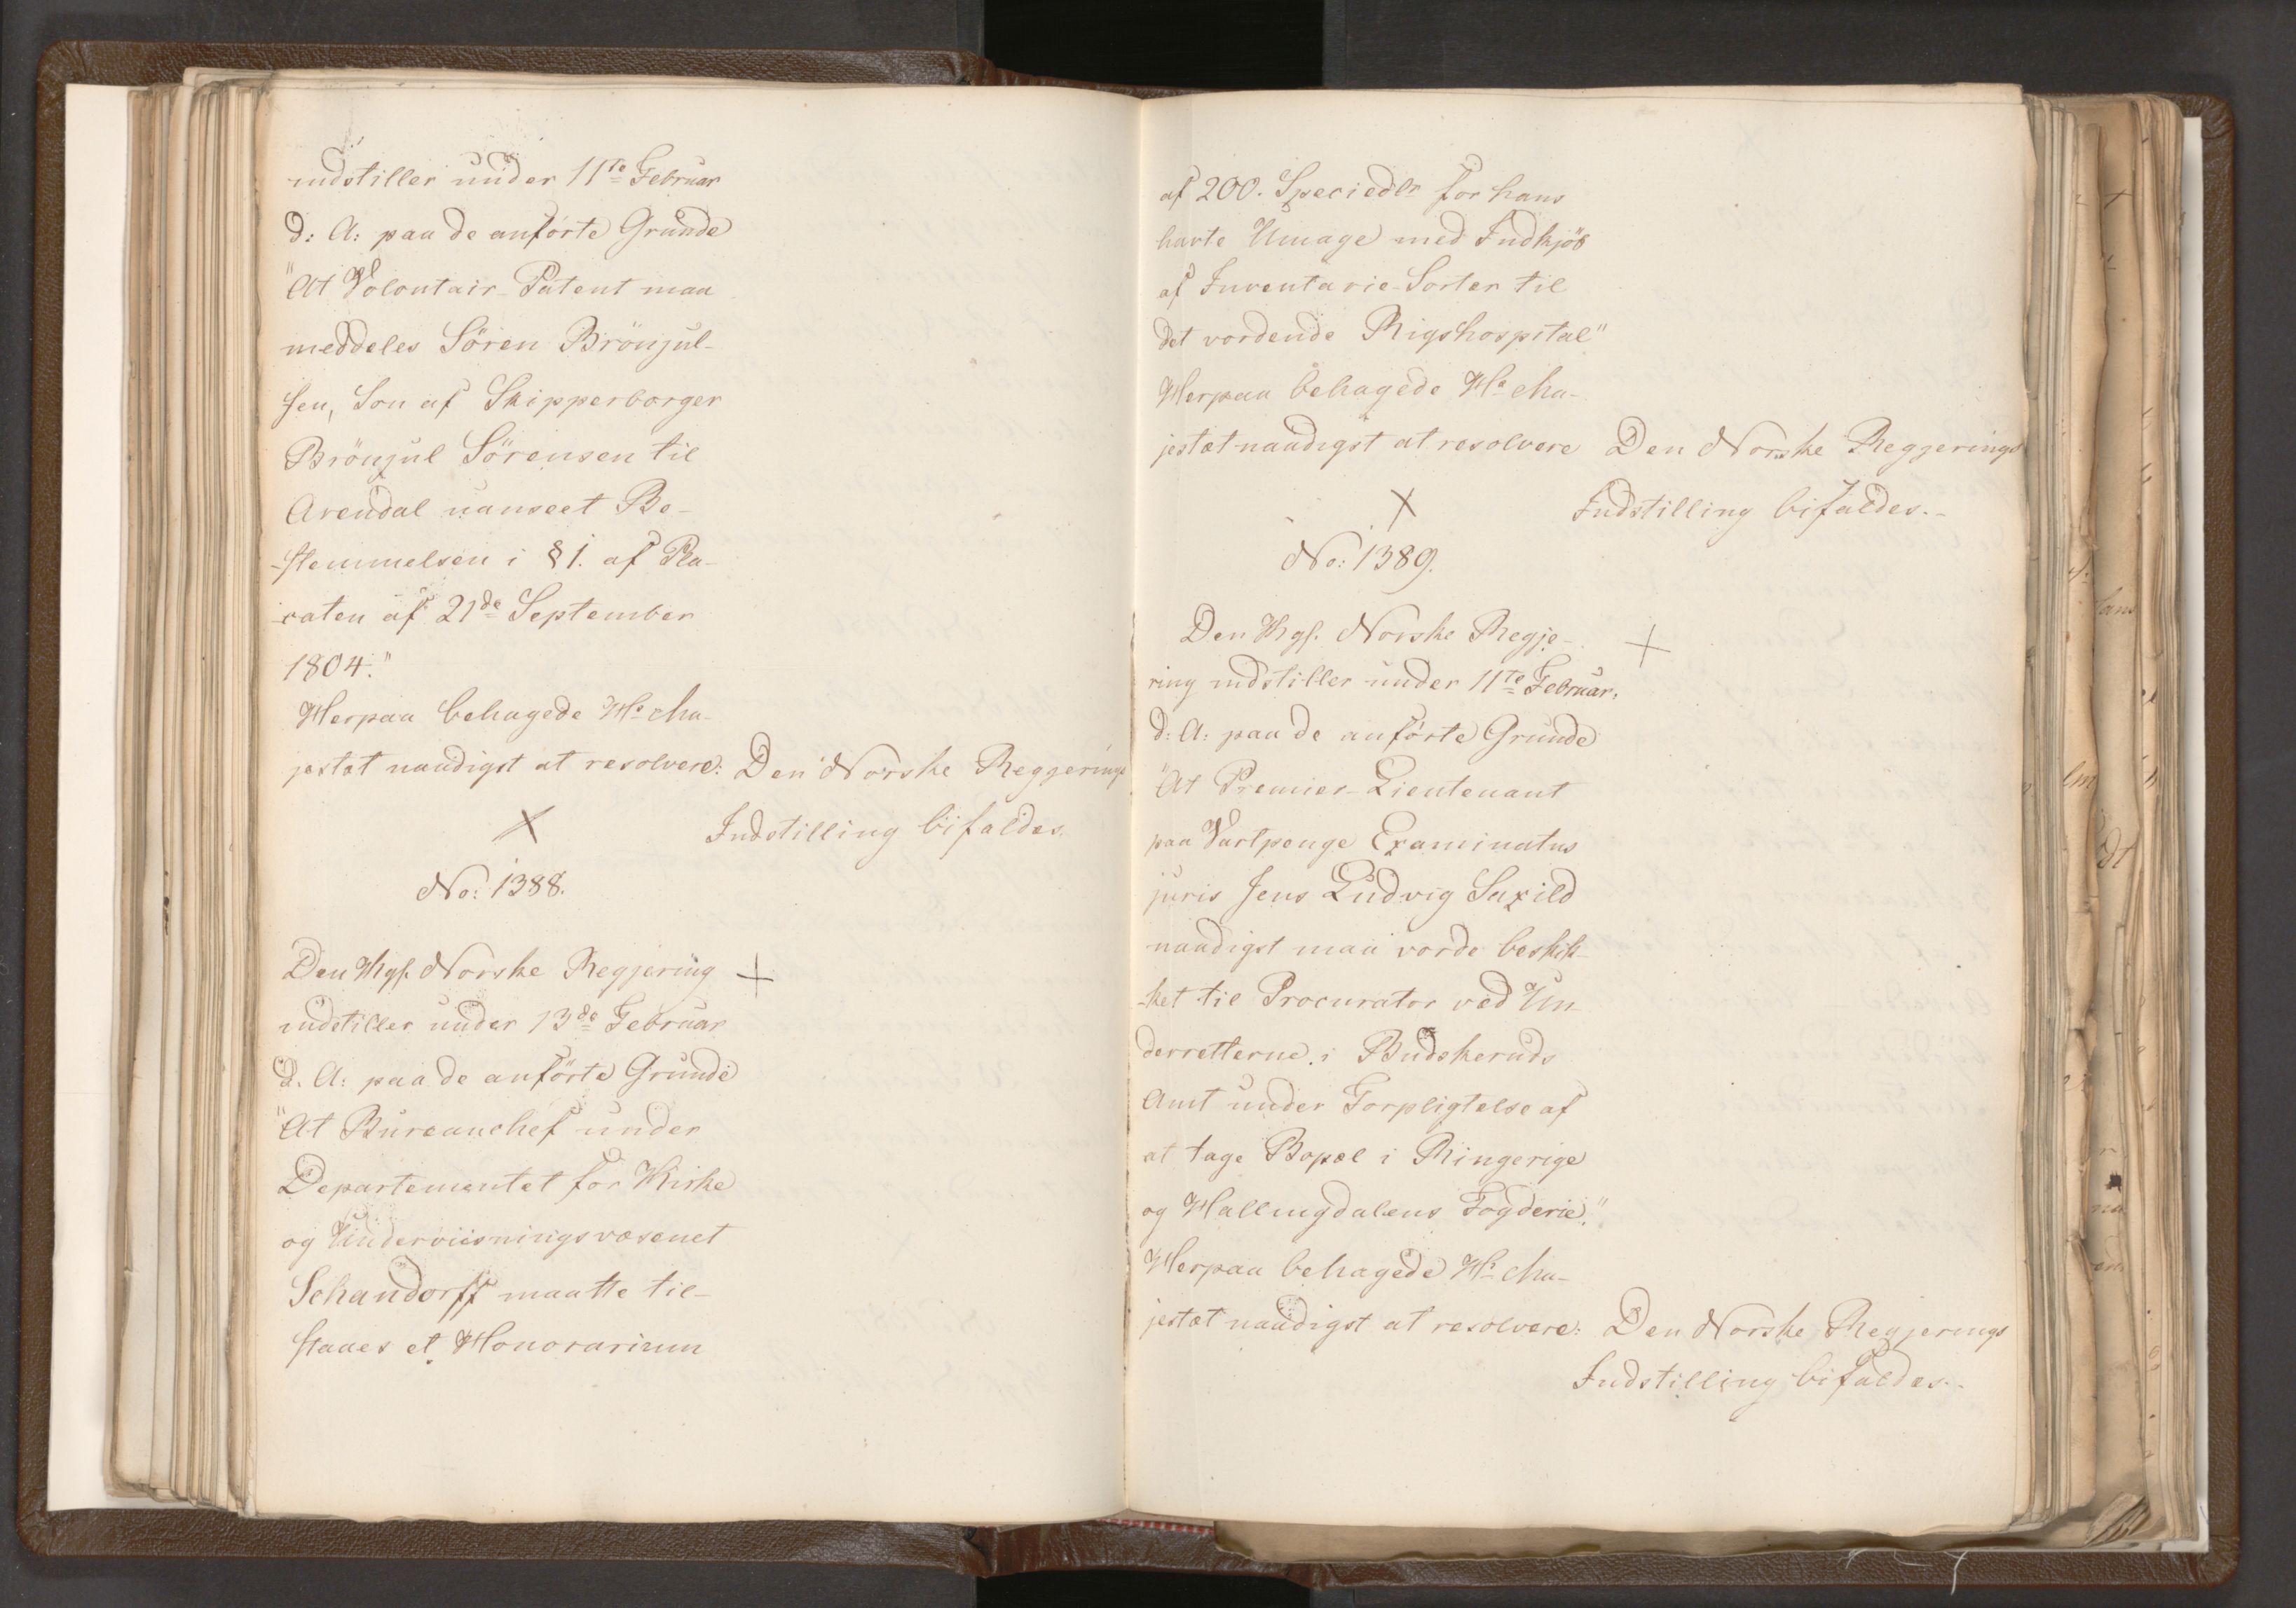 indstiller under 11te Februar
d: A: paa de anförte Grunde
"At Volontair-Patent maa
meddeles Sören Brönjul-
sen, Son af Skipperborger
Brönjul Sörensen til
Arendal uanseet Be-
-stemmelsen i § 1. af Pla-
caten af 21de September
1804."
Herpaa behagede Hs Ma-
jestæt naadigst at resolvere: Den Norske Regjerings
Indstilling bifaldes.
No: 1388.
Den Kgl. Norske Regjering
indstiller under 13de Februar
d. A: paa de anförte Grunde
"At Bureauchef under
Departementet for Kirke
og Underviisningsvæsenet
Schandorff maatte til-
staaes et Honorarium
af 200. Speciedlr for hans
havte Umage med Indkjöb
af Inventarie-Sorter til
det vordende Rigshospital"
Herpaa behagede Hs Ma-
jestæt naadigst at resolvere Den Norske Regjerings
Indstilling bifaldes.-
No: 1389.
Den Kgl. Norske Regje-
ring indstiller under 11te Februar.
d: A: paa de anförte Grunde
"At Premier-Lieutenant
paa Vartpenge Examinatus
juris Jens Ludvig Saxild
naadigst maa vorde beskik-
-ket til Procurator ved Un-
derretterne i Budskeruds
Amt under Forpligtelse af
at tage Bopæl i Ringerige
og Hallingdalens Fogderie."
Herpaa behagede Hs Ma-
jestæt naadigst at resolvere: Den Norske Regjerings
Indstilling bifaldes.-